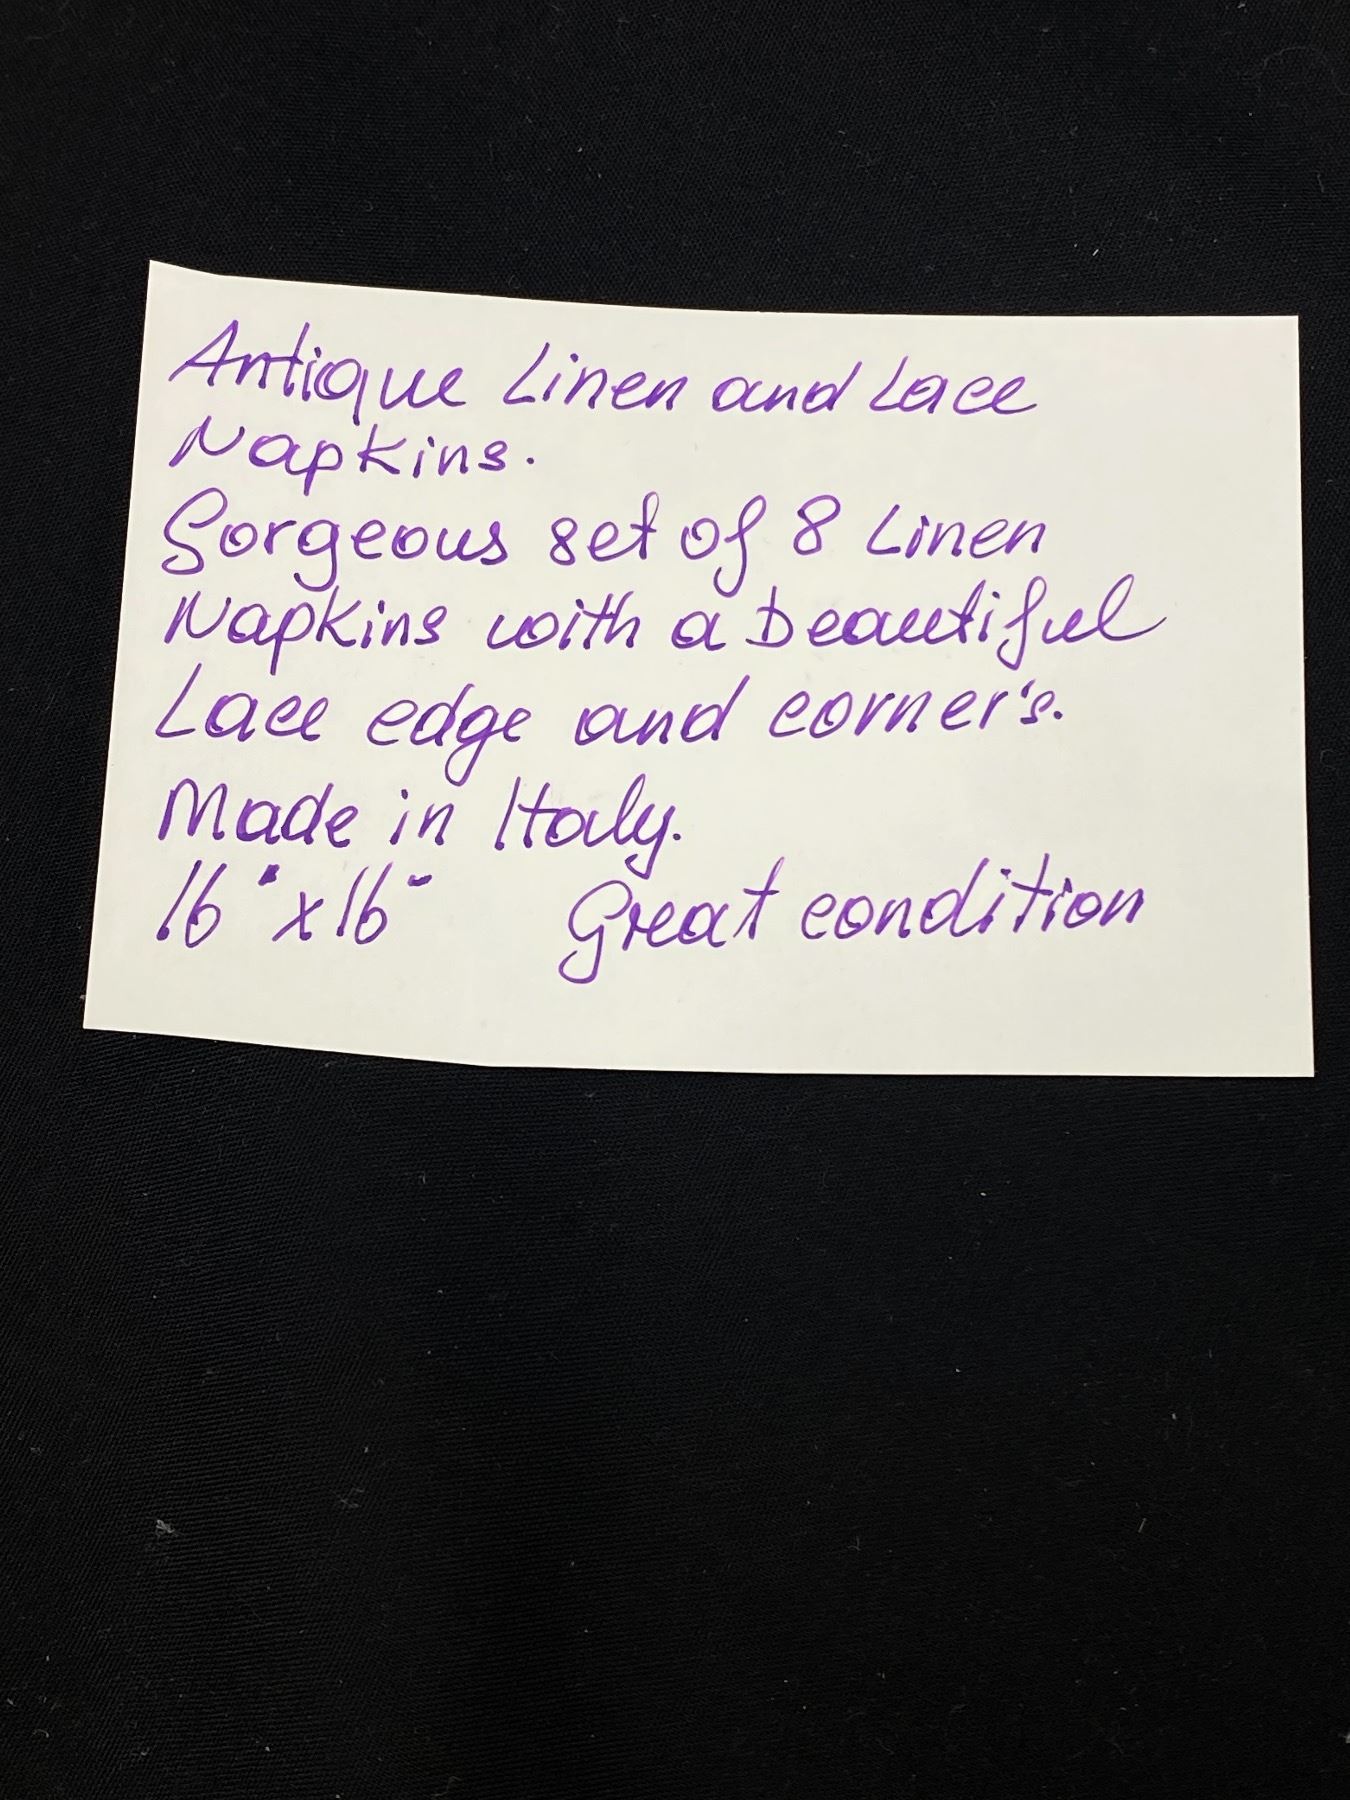 Antique Linen and Lace
Napkins.
Gorgeous set of 8 Linen
Napkins with a beautiful
Lace edge and corner's.
Made in Italy.
16" x 16" Great condition